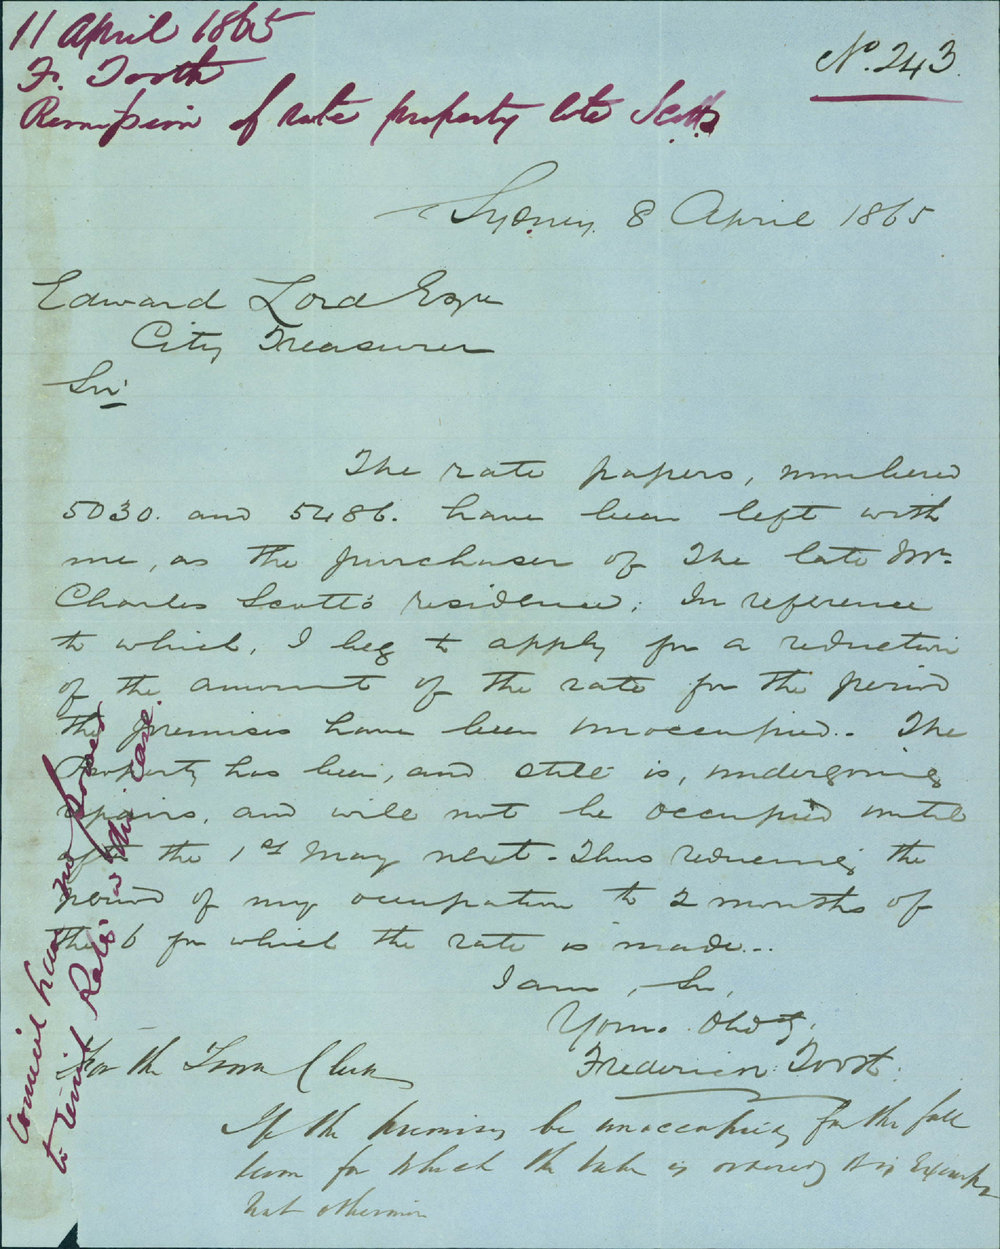 11 April 1865
F. Tooth
Remission of rate property late Scotts
No. 243.
Sydney 8 April 1865
Edward Lord Esqre
City Treasurer
Sir
The rate papers, numbered
5030. and 5486. have been left with
me, as the purchaser of the late Mr.
Charles Scott's residence; In reference
to which, I beg to apply for a reduction
of the amount of the rate for the period
the premises have been unoccupied.. The
Property has been, and still is, undergoing
repairs, and will not be occupied until
aft the 1st May next - Thus reducing the
period of my occupation to 2 months of
the 6 for which the rate is made..
I am, Sir,
Your Obdt
Frederick Tooth.
For the Town Clerk
If the premises be unoccupied for the full
term for which the rate is ordered it is Exempt
but otherwise
Council have no power
to remit Rates in this case.